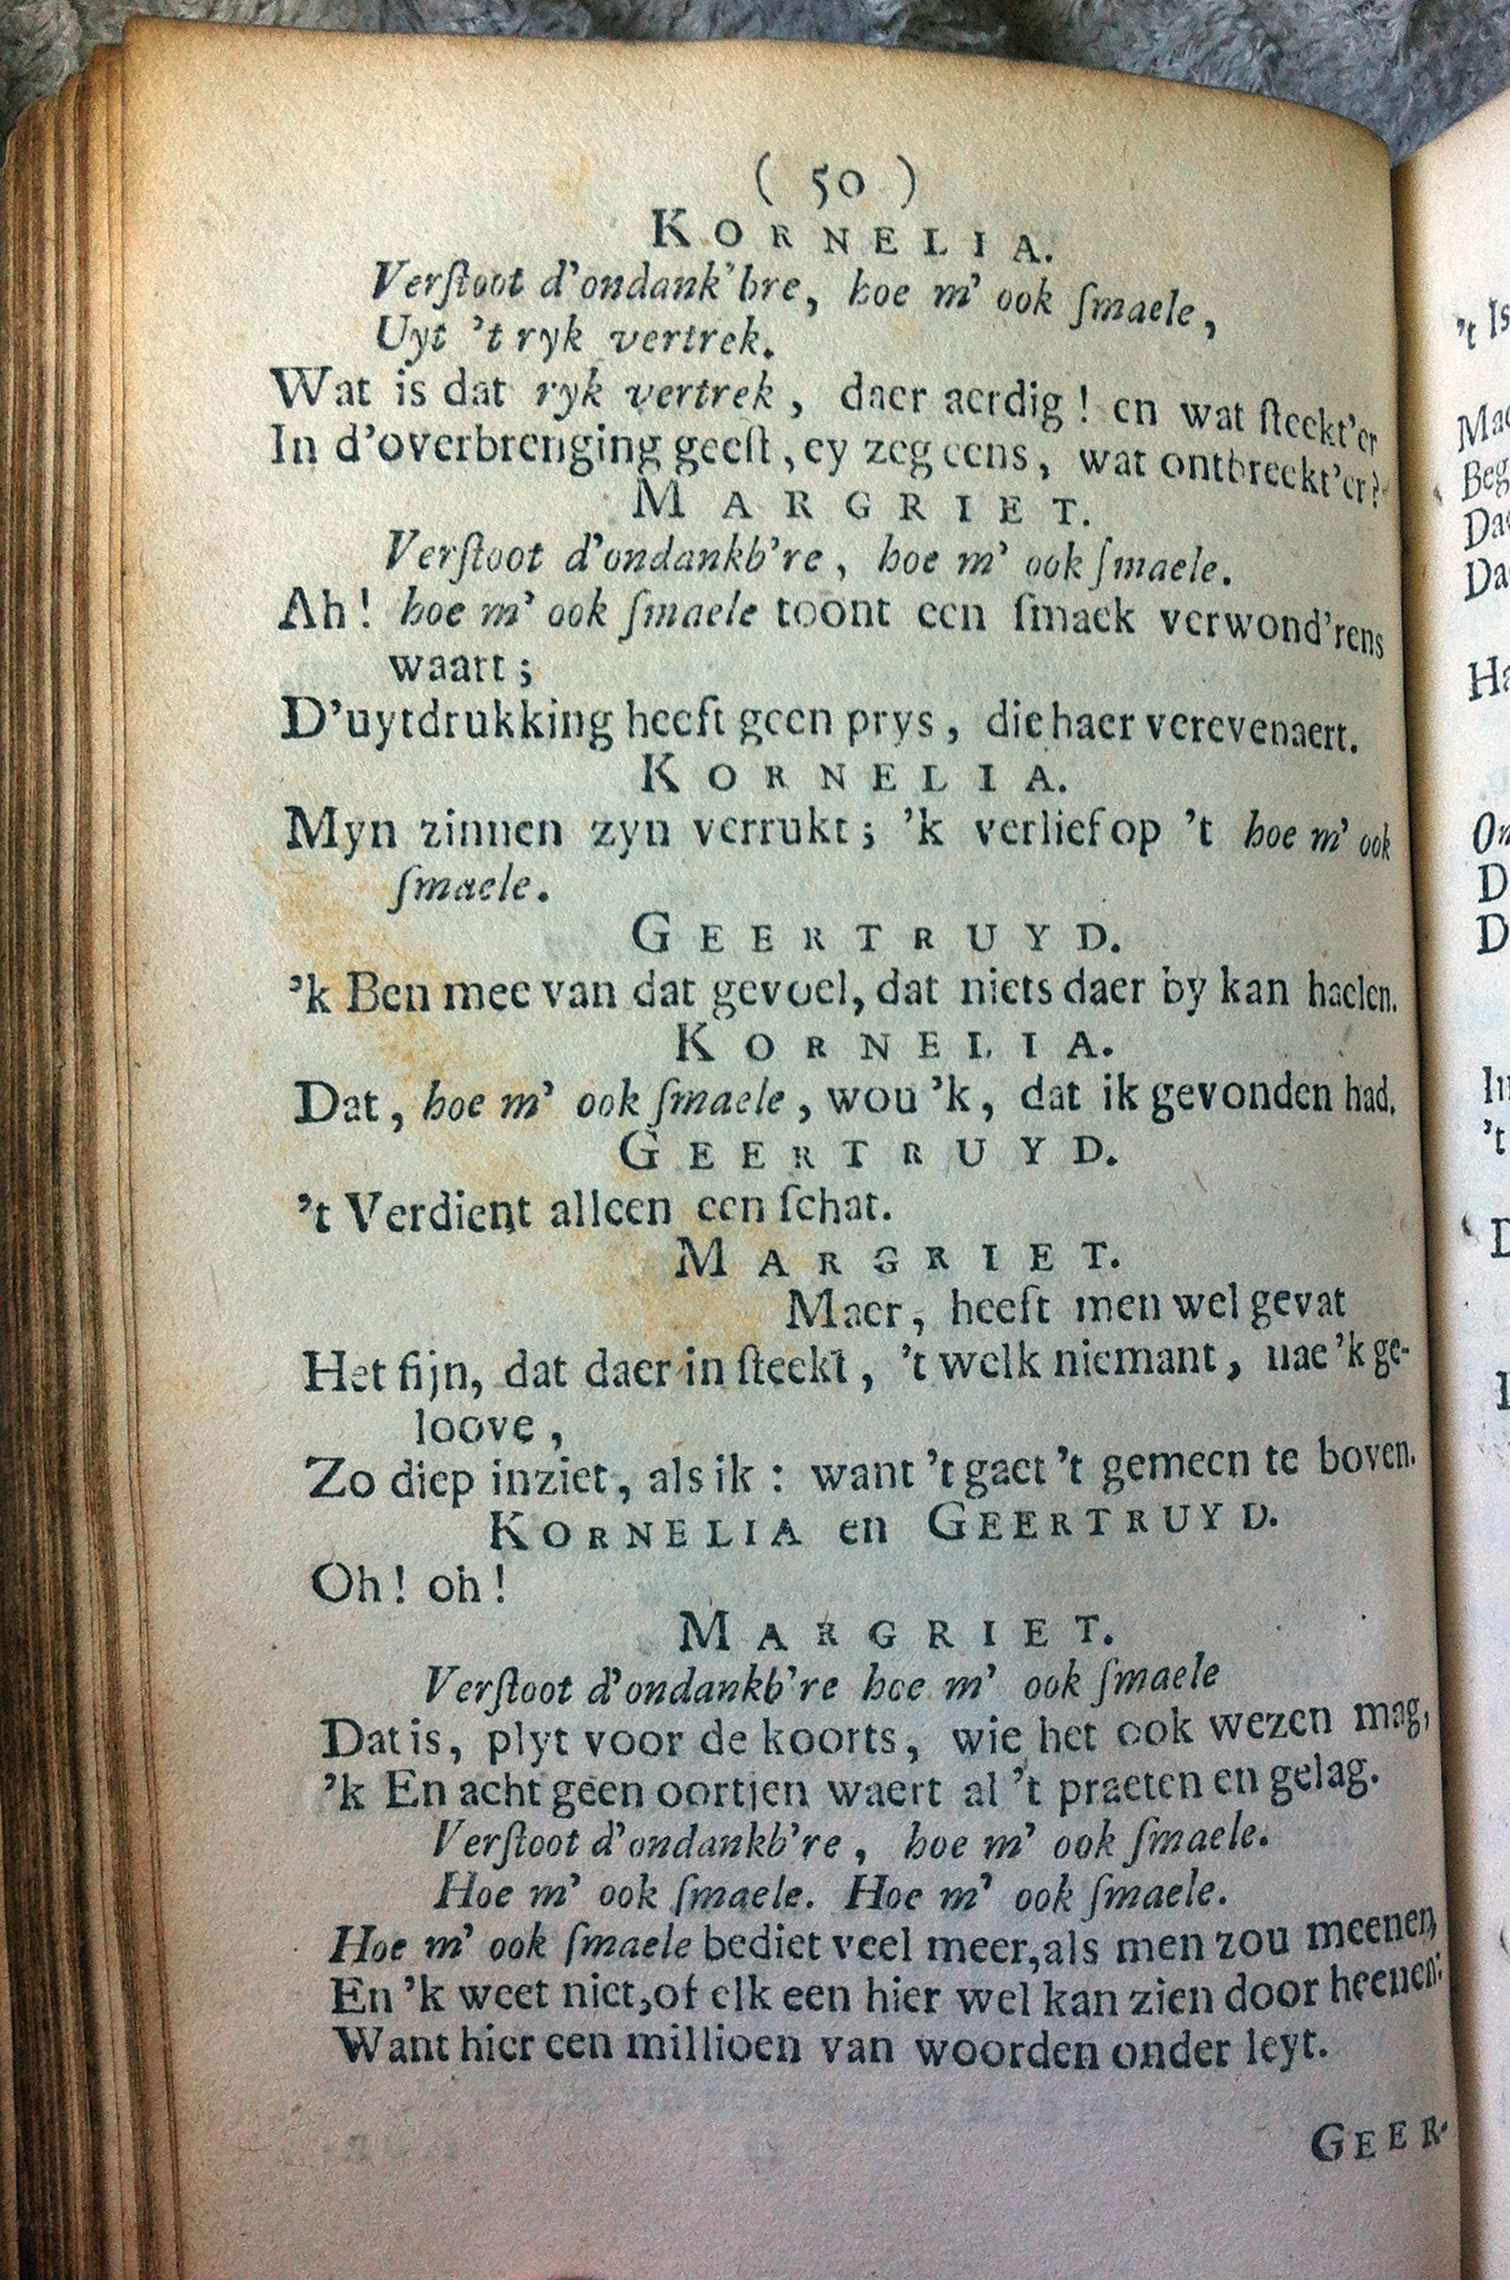 ( 50 )
KORNELIA.
Verſtoot d'ondank'bre, hoe m' ook ſmaele,
Uyt 't ryk vertrek.
Wat is dat ryk vertrek, daer aerdig! en wat ſteekt'er
In d'overbrenging geeſt, ey zeg eens, wat ontbreekt'er?
MARGRIET.
Verſtoot d'ondankb're, hoe m' ook ſmaele.
Ah! hoe m' ook ſmaele toont een ſmaek verwond'rens
waart;
D'uytdrukking heeft geen prys, die haer verevenaert.
KORNELIA.
Myn zinnen zyn verrukt; 'k verlief op 't hoe m' ook
ſmaele.
GEERTRUYD.
'k Ben mee van dat gevoel, dat niets daer by kan haelen.
KORNELIA.
Dat, hoe m' ook ſmaele, wou 'k, dat ik gevonden had.
GEERTRUYD.
't Verdient alleen een ſchat.
MARGRIET.
Maer, heeft men wel gevat
Het fijn, dat daer in ſteekt, 't welk niemant, nae 'k ge-
loove,
Zo diep inziet, als ik: want 't gaet 't gemeen te boven.
KORNELIA en GEERTRUYD.
Oh! oh!
MARGRIET.
Verſtoot d'ondankb're hoe m' ook ſmaele
Dat is, plyt voor de koorts, wie het ook wezen mag,
'k En acht geen oortjen waert al 't praeten en gelag.
Verſtoot d'ondankb're, hoe m' ook ſmaele.
Hoe m' ook ſmaele. Hoe m' ook ſmaele.
Hoe m' ook ſmaele bediet veel meer, als men zou meenen,
En 'k weet niet, of elk een hier wel kan zien door heenen:
Want hier een millioen van woorden onder leyt.
GEER-
't Is
Beg